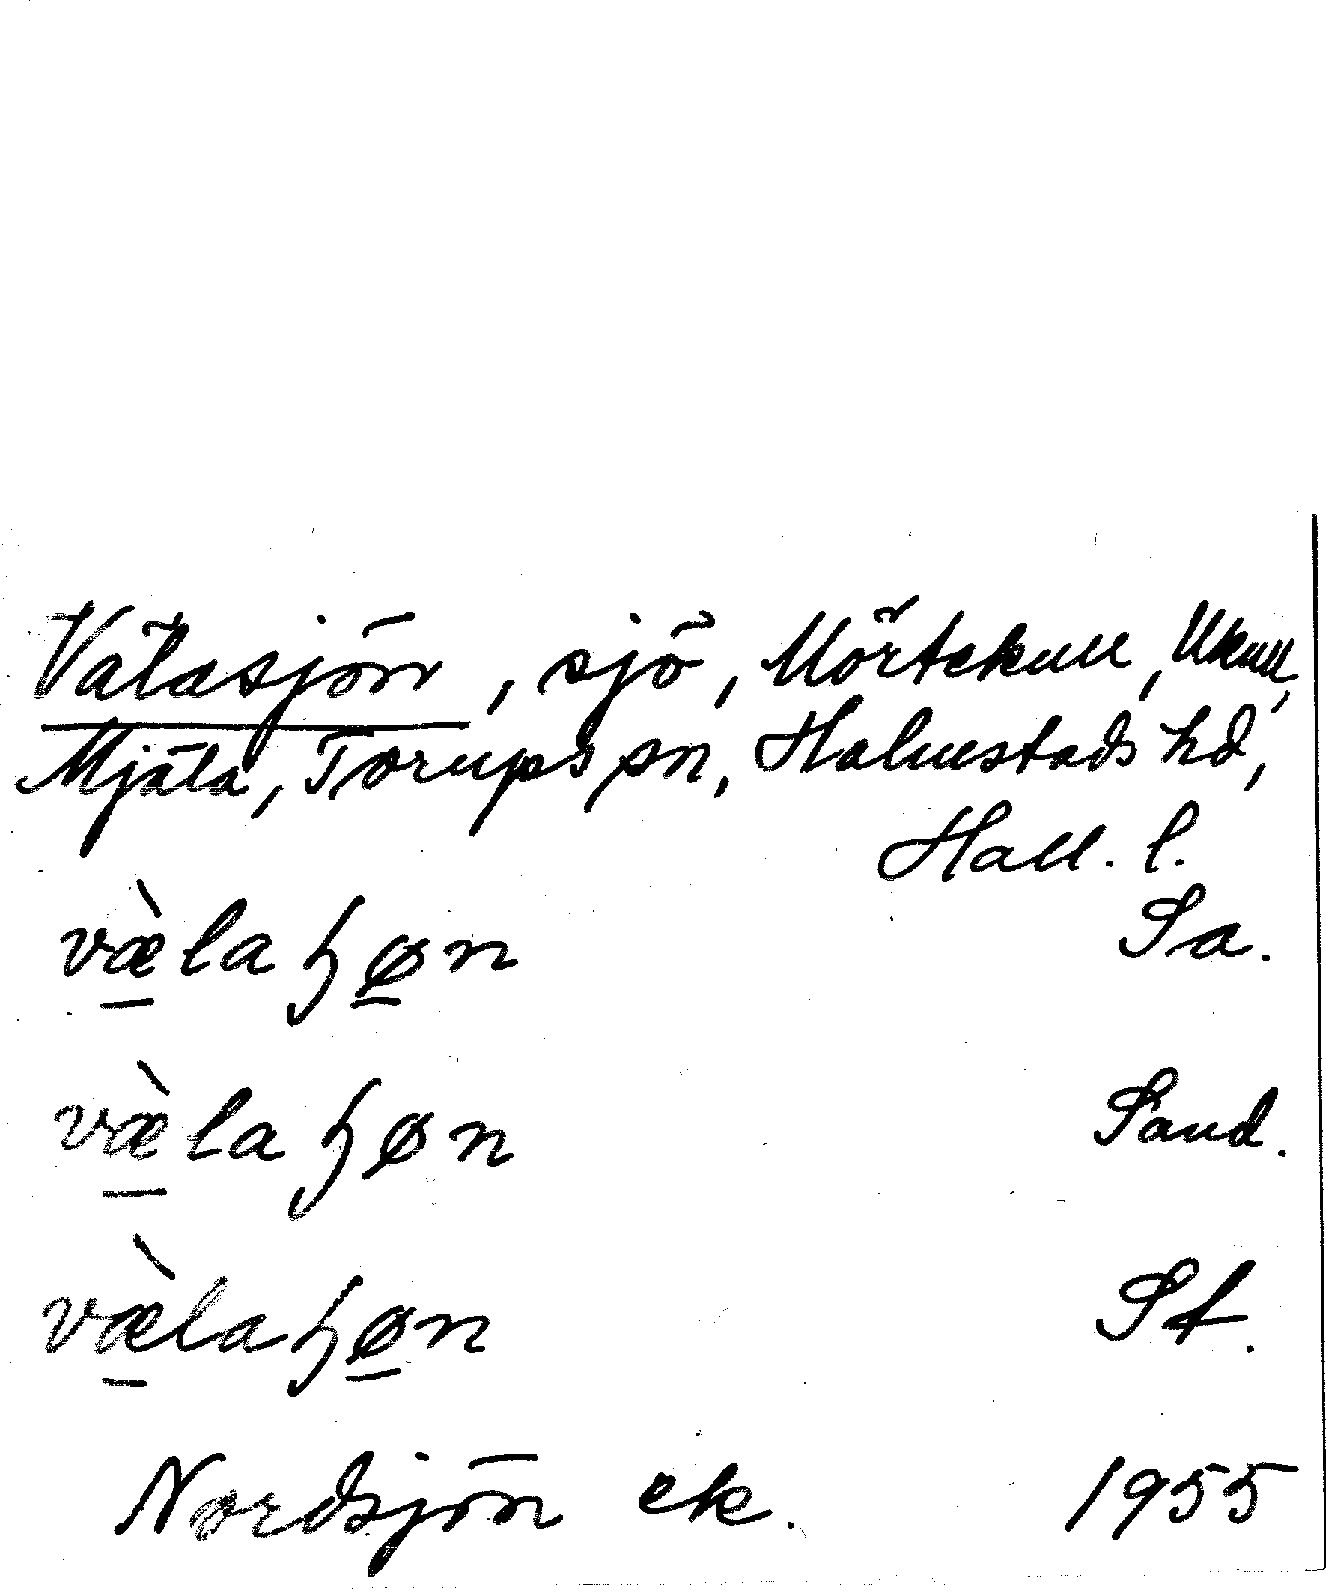 Välasjön, sjö, Mörtekull, Ukull,
Mjäla, Torups sn, Halmstads hd,
Hall. l.
væ̀laɧøn Sa.
væ̀laɧøn Sand.
væ̀laɧøn St.
Nordsjön ek. 1955